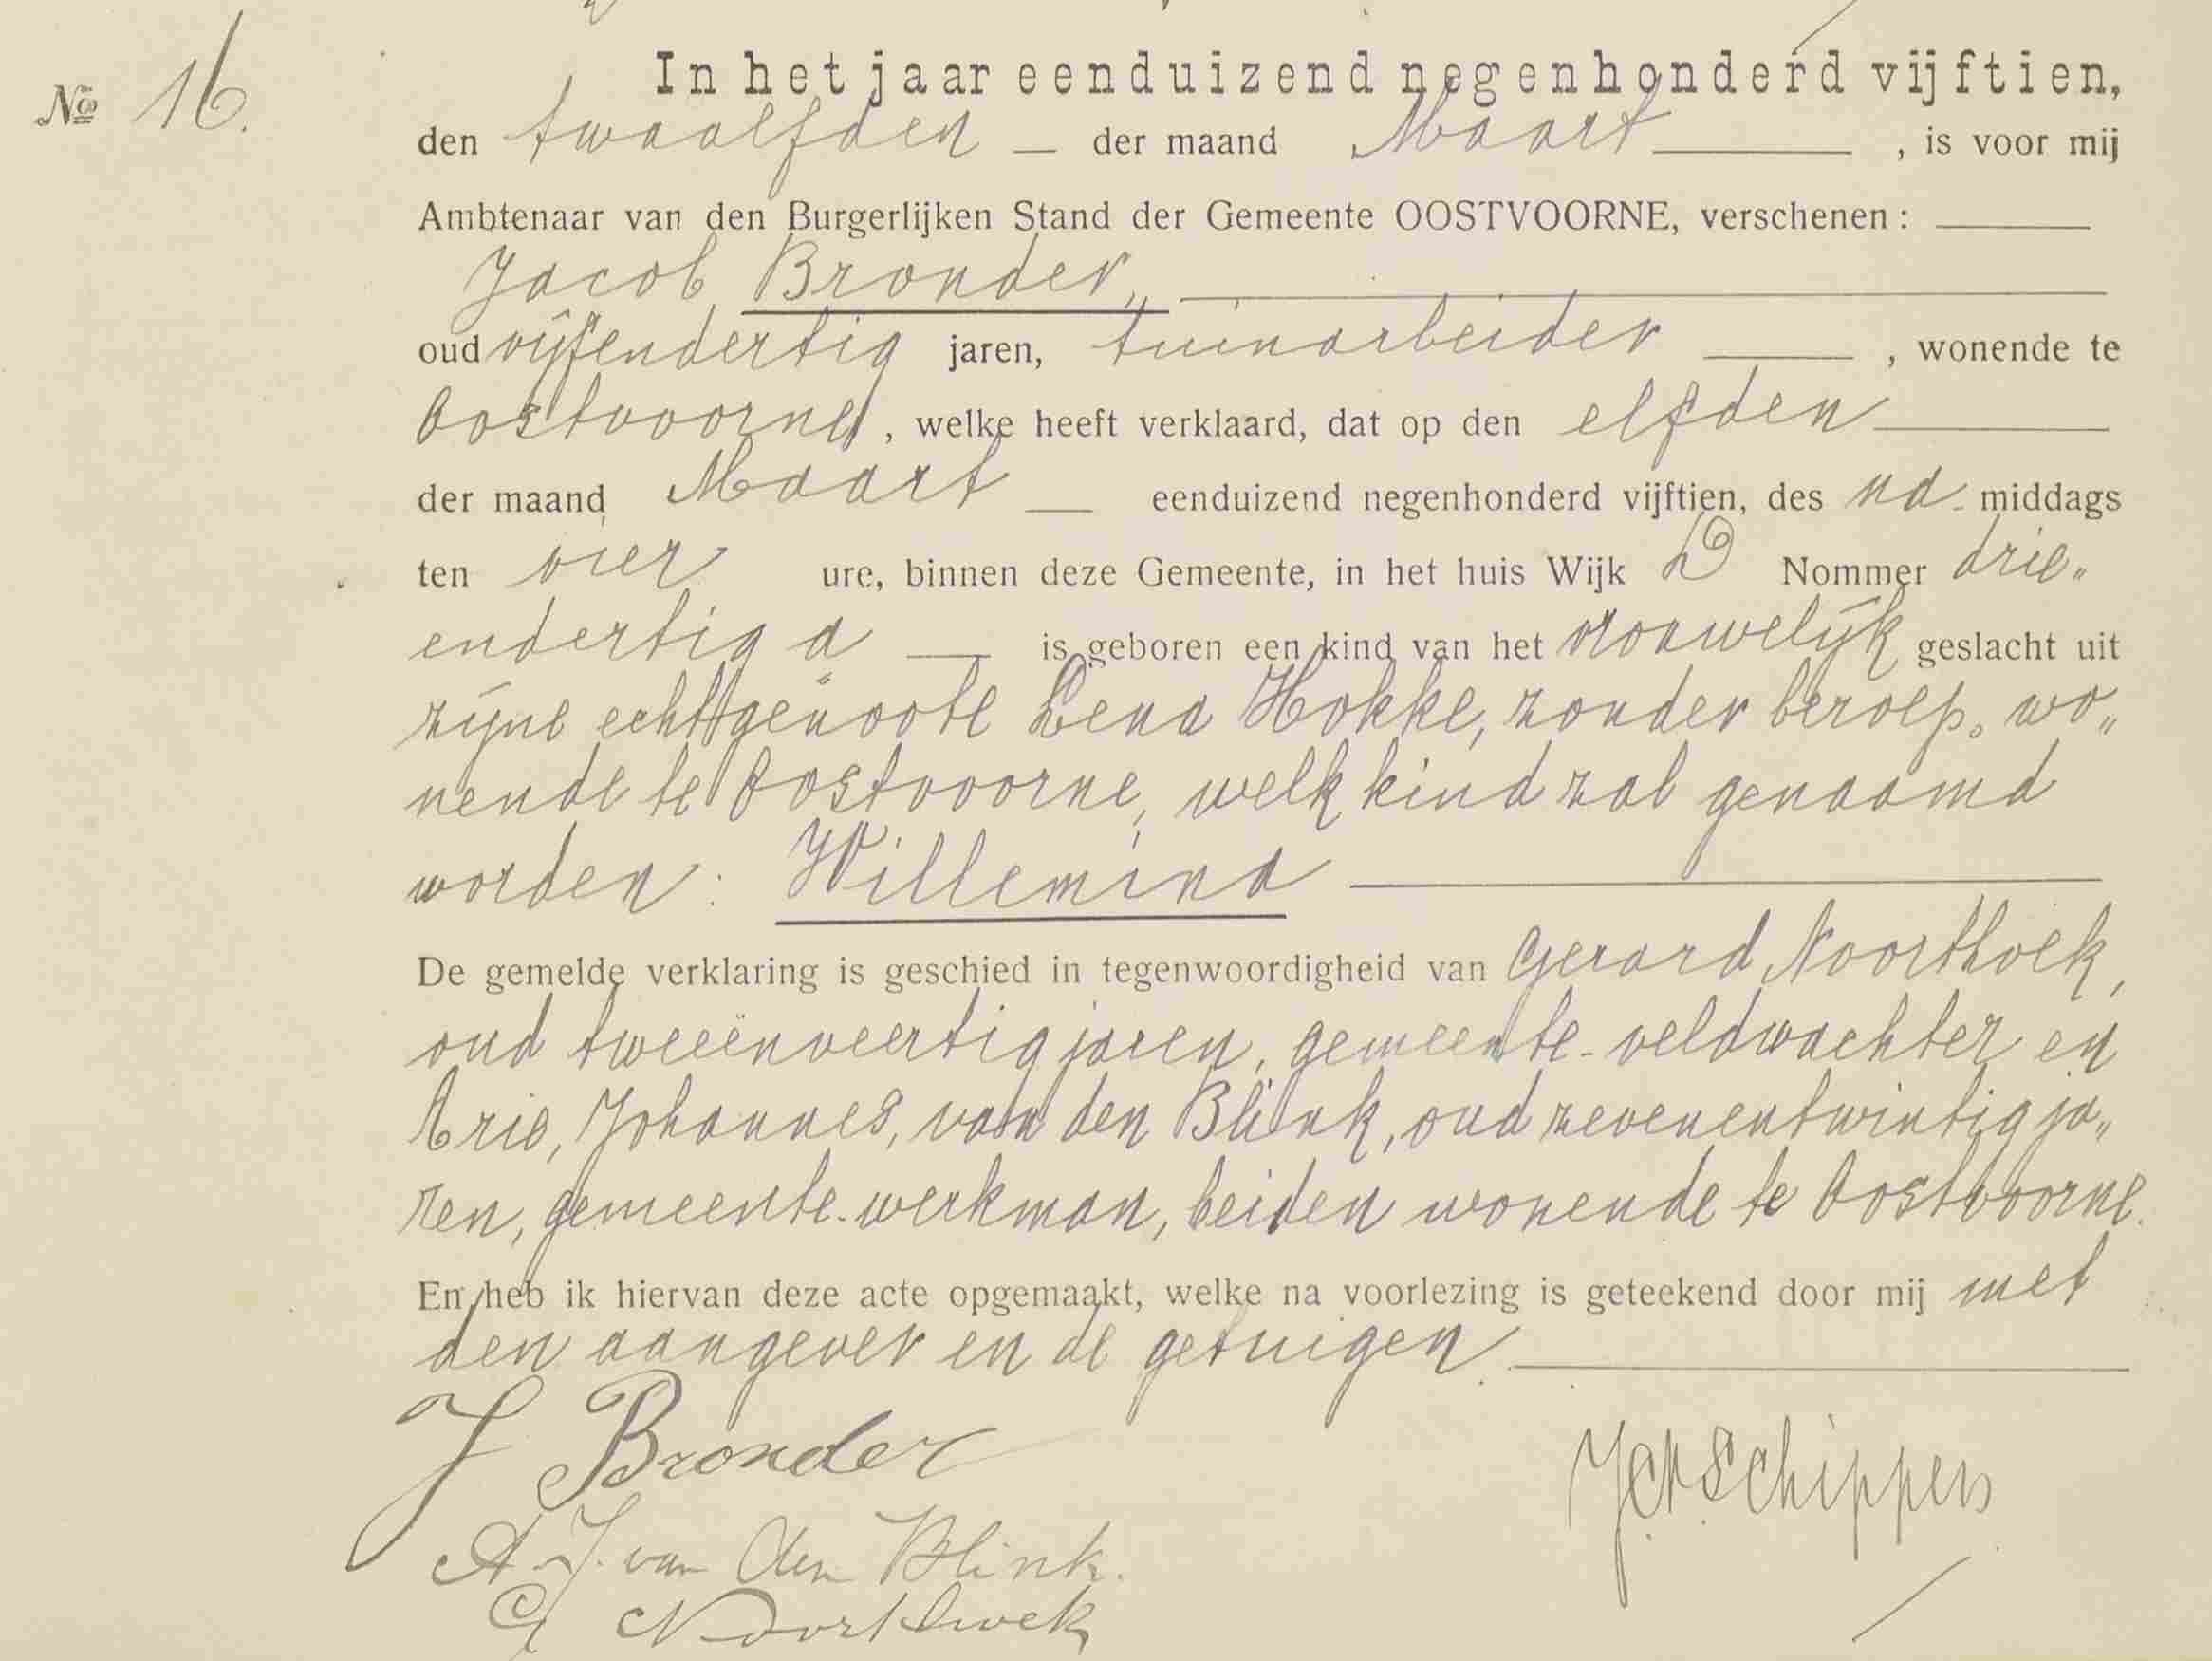 No 16.
In het jaar eenduizend negenhonderd vijftien,
den twaalfden — der maand Maart —, is voor mij
Ambtenaar van den Burgerlijken Stand der Gemeente OOSTVOORNE, verschenen: —
Jacob Bronder, —
oud vijfendertig jaren, tuinarbeider —, wonende te
Oostvoorne, welke heeft verklaard, dat op den elfden —
der maand Maart — eenduizend negenhonderd vijftien, des na- middags
ten vier ure, binnen deze Gemeente, in het huis Wijk D Nommer drie„
endertig a — is geboren een kind van het vrouwelijk geslacht uit
zijne echtgenoote Lena Hokke, zonder beroep, wo„
nende te Oostvoorne, welk kind zal genaamd
worden: Willemina —
De gemelde verklaring is geschied in tegenwoordigheid van Gerard Noorthoek,
oud tweeënveertig jaren, gemeente-veldwachter en
Arie, Johannes, van den Blink, oud zevenentwintig ja„
ren, gemeente-werkman, beiden wonende te Oostvoorne.
En heb ik hiervan deze acte opgemaakt, welke na voorlezing is geteekend door mij met
den aangever en de getuigen. —
J Bronder
A. J. van den Blink.
G Noorthoek
Schippers